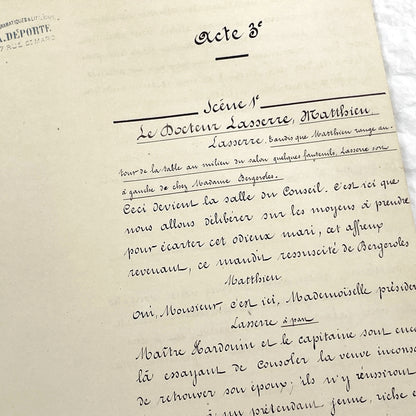 DRAMATIQUES & LIT
A. DÉPORTE.
7 RUE ST MARC
Acte 3e
Scène 1e
Le Docteur Lasserre, Matthieu,
Lasserre, tandis que Matthieu range au-
tour de la table au milieu du salon quelques fauteuils, Lasserre sort
à gauche de chez Madame Bergeroles.
Ceci devient la salle du Conseil. C'est ici que
nous allons délibérer sur les moyens à prendre
pour écarter cet odieux mari, cet affreux
revenant, ce maudit ressuscité de Bergeroles
Matthieu
Oui, Monsieur, c'est ici, Mademoiselle présider
Lasserre à part
Maître Hardouin et le capitaine sont enc
là essayant de consoler la veuve incons
de retrouver son époux; ils n'y réussiront
un prétendant jeune, riche